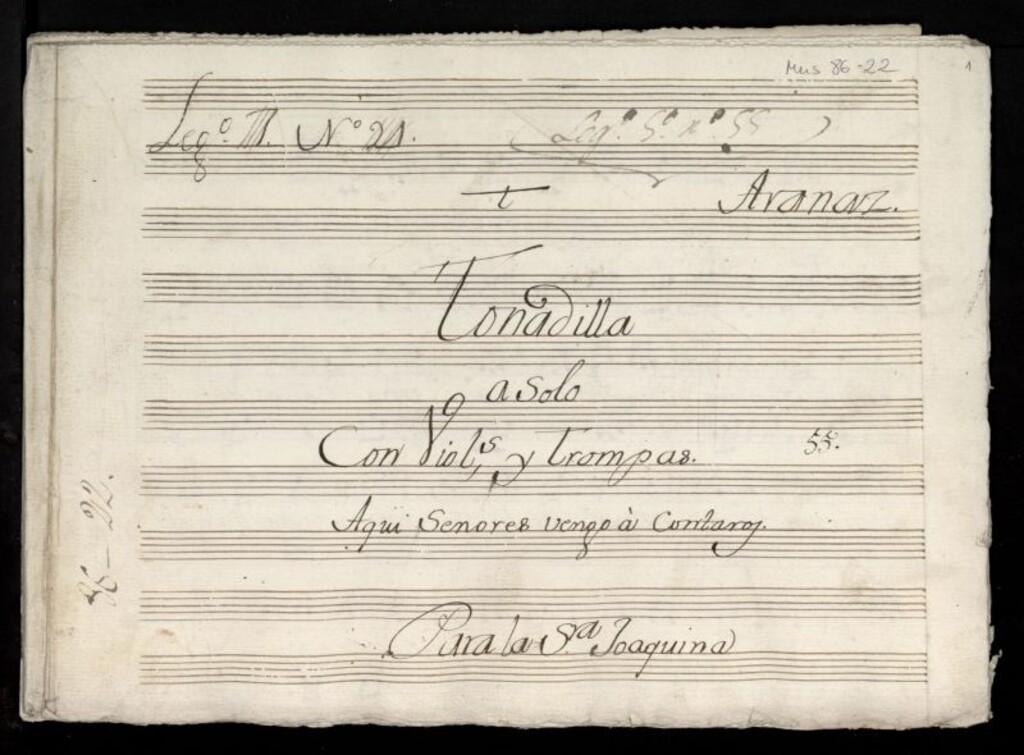 Mus 86-22
1
Leg.º III. N.º 21. (Leg.º 5.º n.º 55)
t Aranaz.
Tonadilla
a Solo
Con Viol.s y trompas. 55.
Aqui Senores vengo à Contaros.
Para la S.ra Joaquina